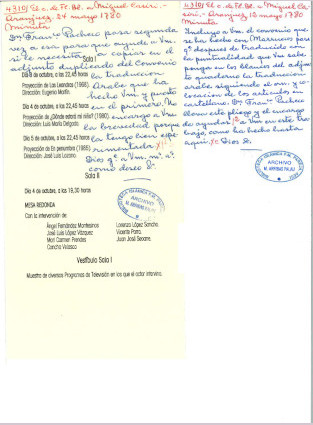 4310/ El c. de Fl. Bl. a Miguel Casiri.-
Aranjuez, 24 mayo 1780
(Minuta)
Dn Franco Pacheco pasa segunda
vez a esa para que ayude a Vm.
si le necesita a copiar en el
adjunto duplicado del Convenio
la traducción
Arabe que ha
hecho Vm. y puesto
en el primero. No
encargo a Vm.
la brevedad porque
la tengo bien espe-
rimentada
Dios gde a Vm. ms. as.
como deseo &.
Sala I
Día 3 de octubre, a las 22,45 horas
Proyección de Los Leandros (1969)
Dirección: Eugenio Martín.
Día 4 de octubre, a las 22,45 horas
Proyección de ¿Dónde estará mi niño? (1980)
Dirección: Luis María Delgado
Día 5 de octubre, a las 22,45 horas
Proyección de En penumbra (1985)
Dirección: José Luis Lozano.
Sala II
Día 4 de octubre, a las 19,30 horas
MESA REDONDA
Con la intervención de:
Ángel Fernández Montesinos
José Luis López Vázquez
Mari Carmen Prendes
Concha Velasco
Lorenzo López Sancho
Vicente Parra
Juan José Seoane.
Vestíbulo Sala I
Muestra de diversos Programas de Televisión en los que el actor intervino.
ARCHIVO
M. ARRIBAS PALAU
4309/ El c. de Fl. Bl. a Miguel Ca-
siri.- Aranjuez, 18 mayo 1780
Minuta
Incluyo a Vm. el convenio que
se ha hecho con Marruecos para
qe despues de traducido con
la puntualidad que Vm. sabe
ponga en los blancos del adjun-
to quaderno la traducción
arabe siguiendo el orn. y co-
locacion de los artículos en
castellano. Dn Franco Pacheco
lleva este pliego y el encargo
de ayudar a Vm en este tra-
bajo, como ha hecho hasta
aquí. Dios &.
ARCHIVO
M. ARRIBAS PALAU